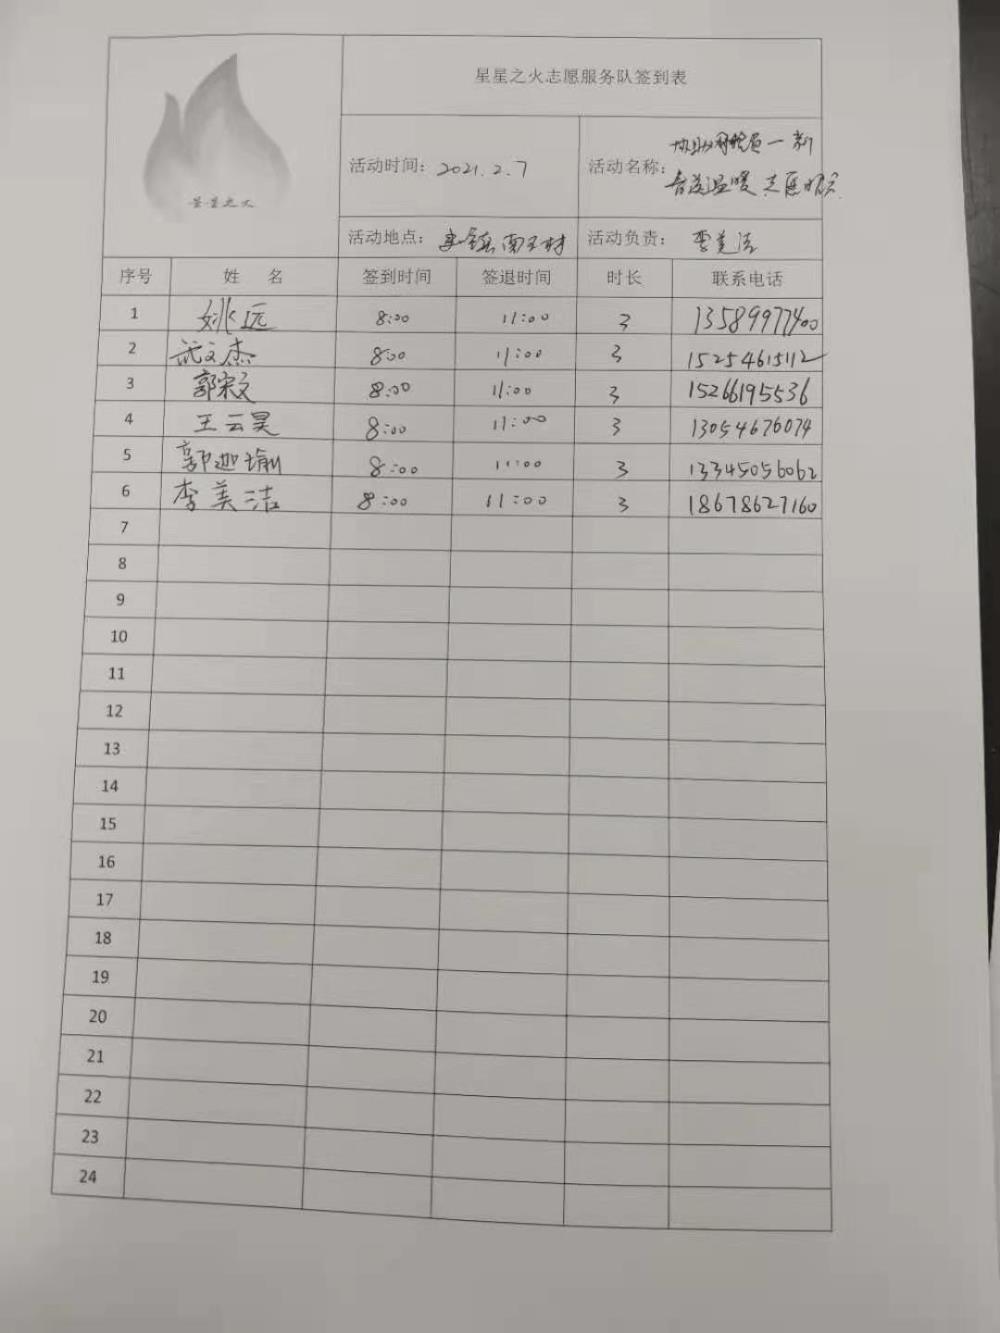 星星之火志愿服务队签到表
星星之火
活动时间: 2021.2.7
活动名称:
活动地点:
活动负责: 李美洁
序号 姓 名 签到时间 签退时间 时长 联系电话
1 姚远 8:00 11:00 3 13589977400
2 武文杰 8:00 11:00 3 15254615112
3 郭宋文 8:00 11:00 3 15266195536
4 王云昊 8:00 11:00 3 13054676074
5 郭迦瑜 8:00 11:00 3 13345056062
6 李美洁 8:00 11:00 3 18678627160
7
8
9
10
11
12
13
14
15
16
17
18
19
20
21
22
23
24